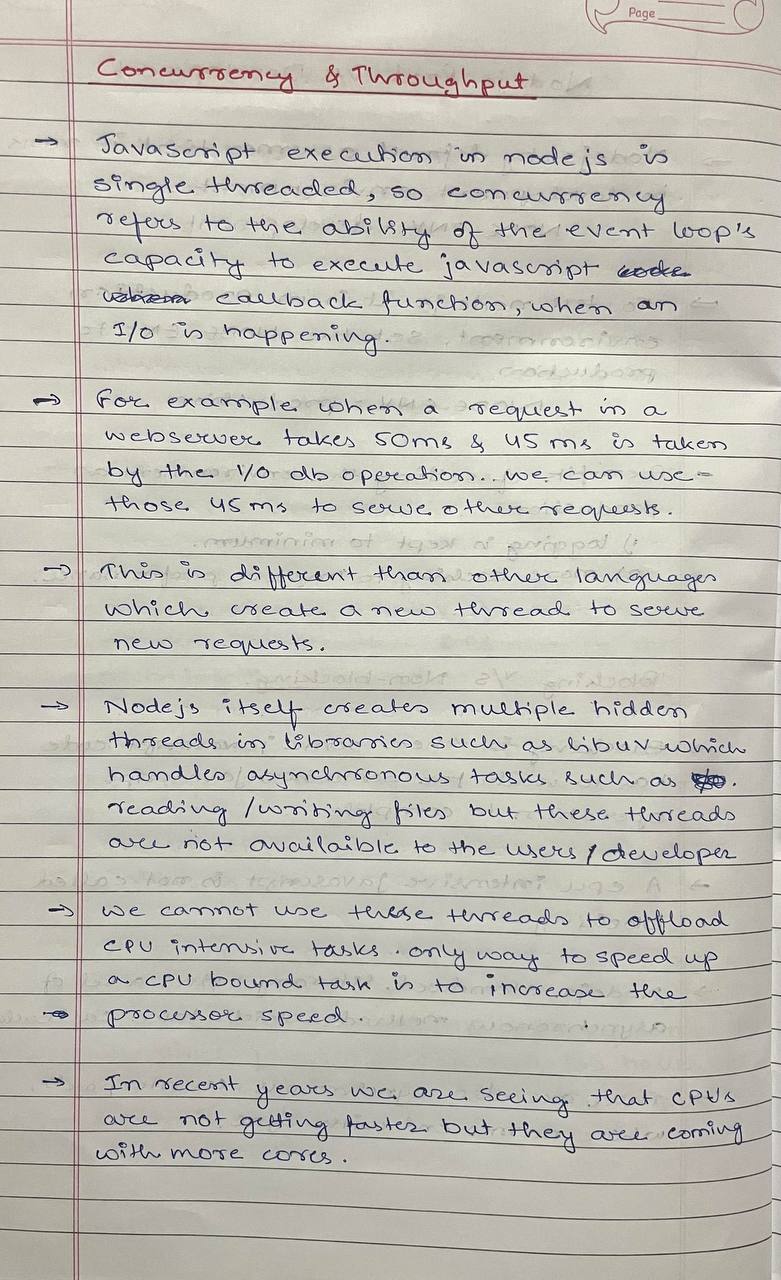 Page
Concurrency & Throughput
→ Javascript execution in nodejs is
single threaded, so concurrency
refers to the ability of the event loop's
capacity to execute javascript code
callback function, when an
I/O is happening.
→ For example when a request in a
webserver takes 50ms & 45 ms is taken
by the I/O db operation.. we can use
those 45 ms to serve other requests.
→ This is different than other languages
which create a new thread to serve
new requests.
→ Nodejs itself creates multiple hidden
threads in libraries such as libuv which
handles asynchronous tasks such as
reading /writing files but these threads
are not availaible to the users / developer
→ we cannot use these threads to offload
CPU intensive tasks. only way to speed up
a CPU bound task is to increase the
→ processor speed.
→ In recent years we are seeing that CPU's
are not getting faster but they are coming
with more cores.